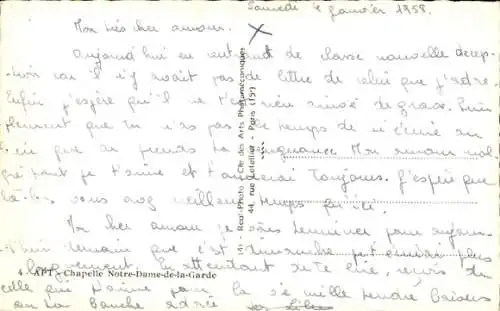 Samedi 4 Janvier 1958.
Mon très cher amour.
Aujourd'hui en rentrant de classe nouvelle décep-
-tion car il n'y avait pas de lettre de celui que j'adore
Enfin j'espère qu'il ne t'est rien arrivé de grave.
que tu n'as pas le temps de m'écrire ou
bien que tu Mon amour mal
gré tout je t'aime et t'aimerai toujours. J'espère que
là-bas vous avez meilleur temps qu'ici.
Mon cher amour je vais terminer pour aujour-
d'hui demain que c'est dimanche je t'écrirai plus
longuement. En attendant de te lire, reçois de
celle qui t'aime pour la vie mille tendres baisers
sur ta bouche adorée
4 APT - Chapelle Notre-Dame-de-la-Garde
Real-Photo - Cie des Arts Photomécaniques
44, rue Letellier - Paris (15°)